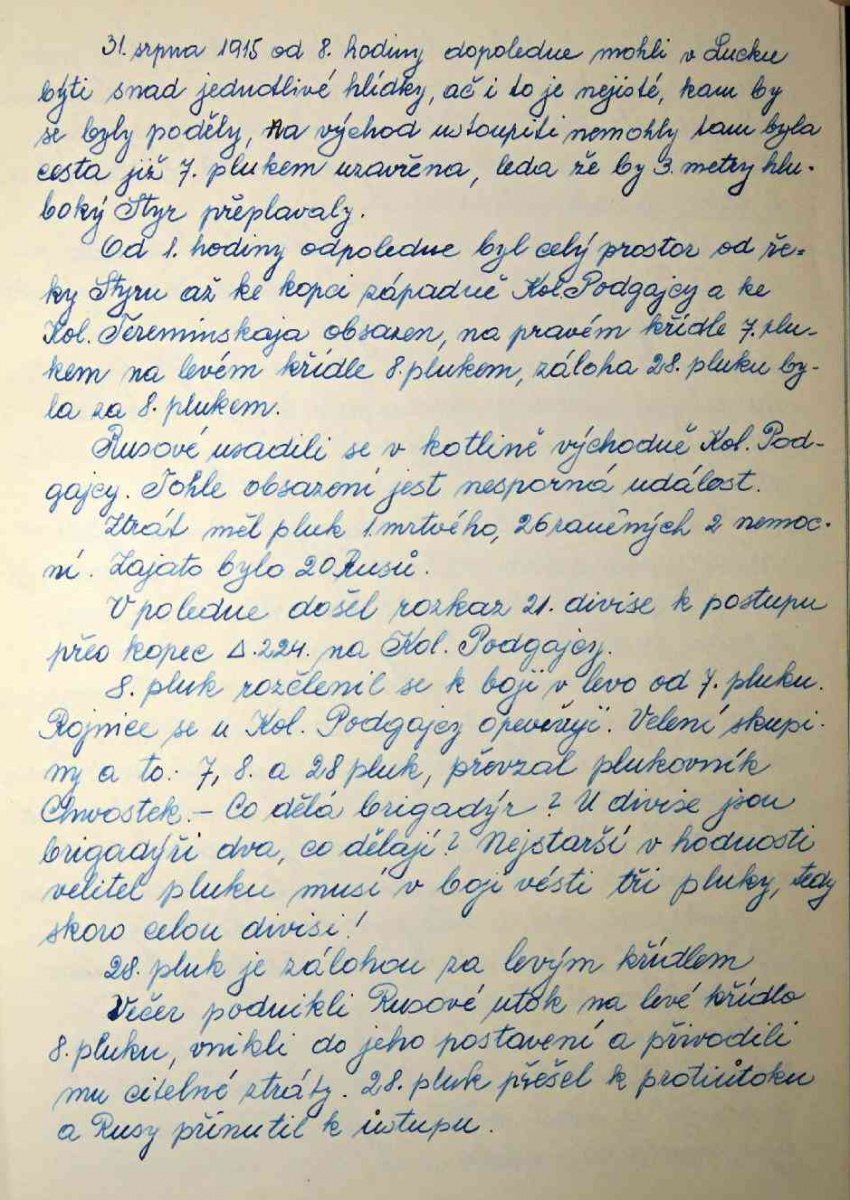 31. srpna 1915 od 8. hodiny dopoledne mohli v Lucku
býti snad jednotlivé hlídky, ač i to je nejisté, kam by
se byly poděly, Na východ ustoupiti nemohly tam byla
cesta již 7. plukem uzavřena, leda že by 3. metry hlu-
boký Styr přeplavaly.
Od 1. hodiny odpoledne byl celý prostor od ře-
ky Styru až ke kopci západně Kol. Podgajcy a ke
Kol. Tereminskaja obsazen, na pravém křídle 7. plu-
kem na levém křídle 8. plukem, záloha 28. pluku by-
la za 8. plukem.
Rusové usadili se v kotlině východně Kol. Pod-
gajcy. Tohle obsazení jest nesporná událost.
Ztrát měl pluk 1 mrtvého, 26 raněných 2 nemoc-
ní. Zajato bylo 20 Rusů.
V poledne došel rozkaz 21. divise k postupu
přes kopec Δ.224. na Kol. Podgajcy.
8. pluk rozčlenil se k boji v levo od 7. pluku.
Rojnice se u Kol. Podgajcy opevňují. Velení skupi-
ny a to: 7, 8. a 28 pluk, převzal plukovník
Chwostek. - Co dělá brigadýr? U divise jsou
brigadýři dva, co dělají? Nejstarší v hodnosti
velitel pluku musí v boji vésti tři pluky, tedy
skoro celou divisi!
28. pluk je zálohou za levým křídlem
Večer podnikli Rusové utok na levé křídlo
8. pluku, vnikli do jeho postavení a přivodili
mu citelné ztráty. 28. pluk přešel k protiútoku
a Rusy přinutil k ústupu.